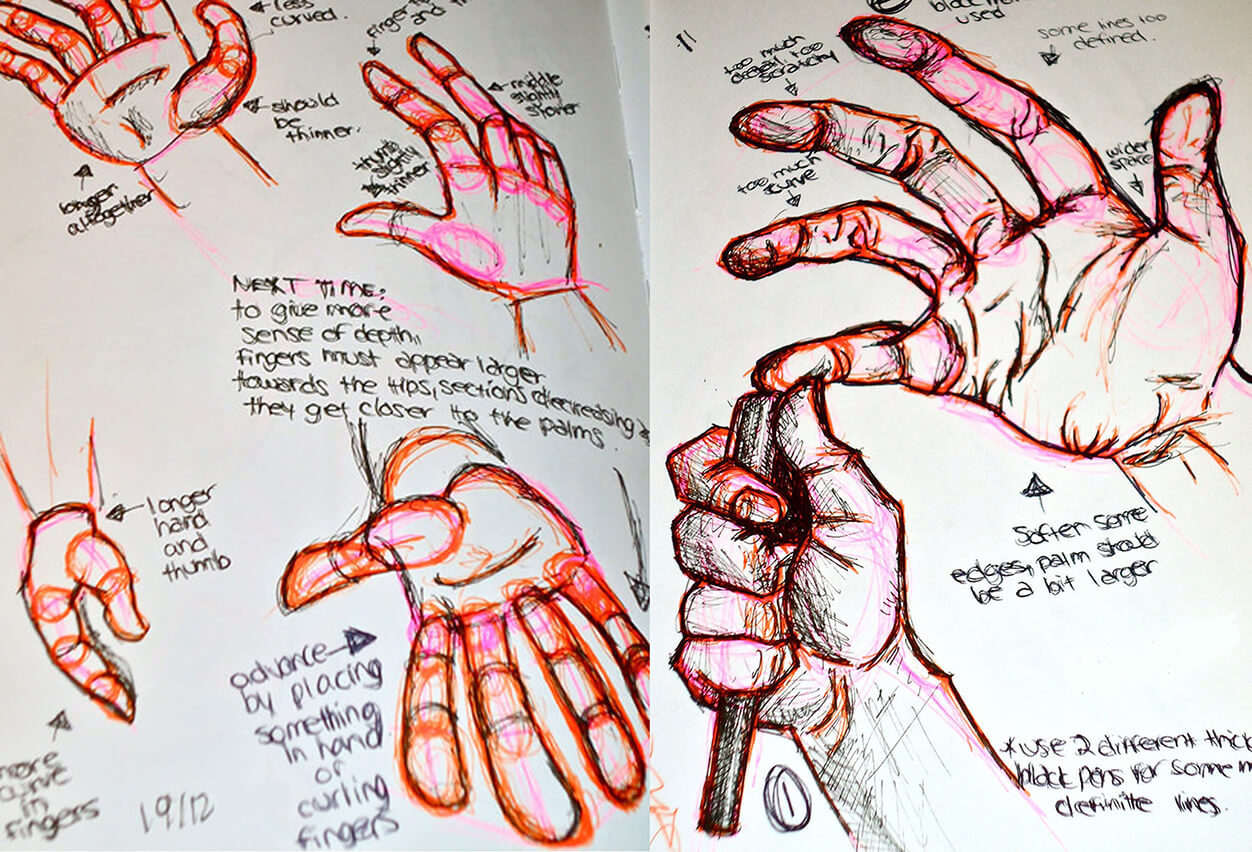 less
curved.
should
be
thinner.
longer
altogether
finger
and
middle
slightly
shorter
thumb
slightly
thinner
NEXT TIME:
to give more
sense of depth,
fingers must appear larger
towards the tips, sections decreasing
they get closer to the palms
longer
hand
and
thumb
more
curve
in
fingers
19/12
advance
by placing
something
in hand
or
curling
fingers
used
some lines too
defined.
too much
detail, too
scratchy
too much
curve
wider
space
Soften some
edges, palm should
be a bit larger
1
*use 2 different thick
black pens for some m
definite lines.